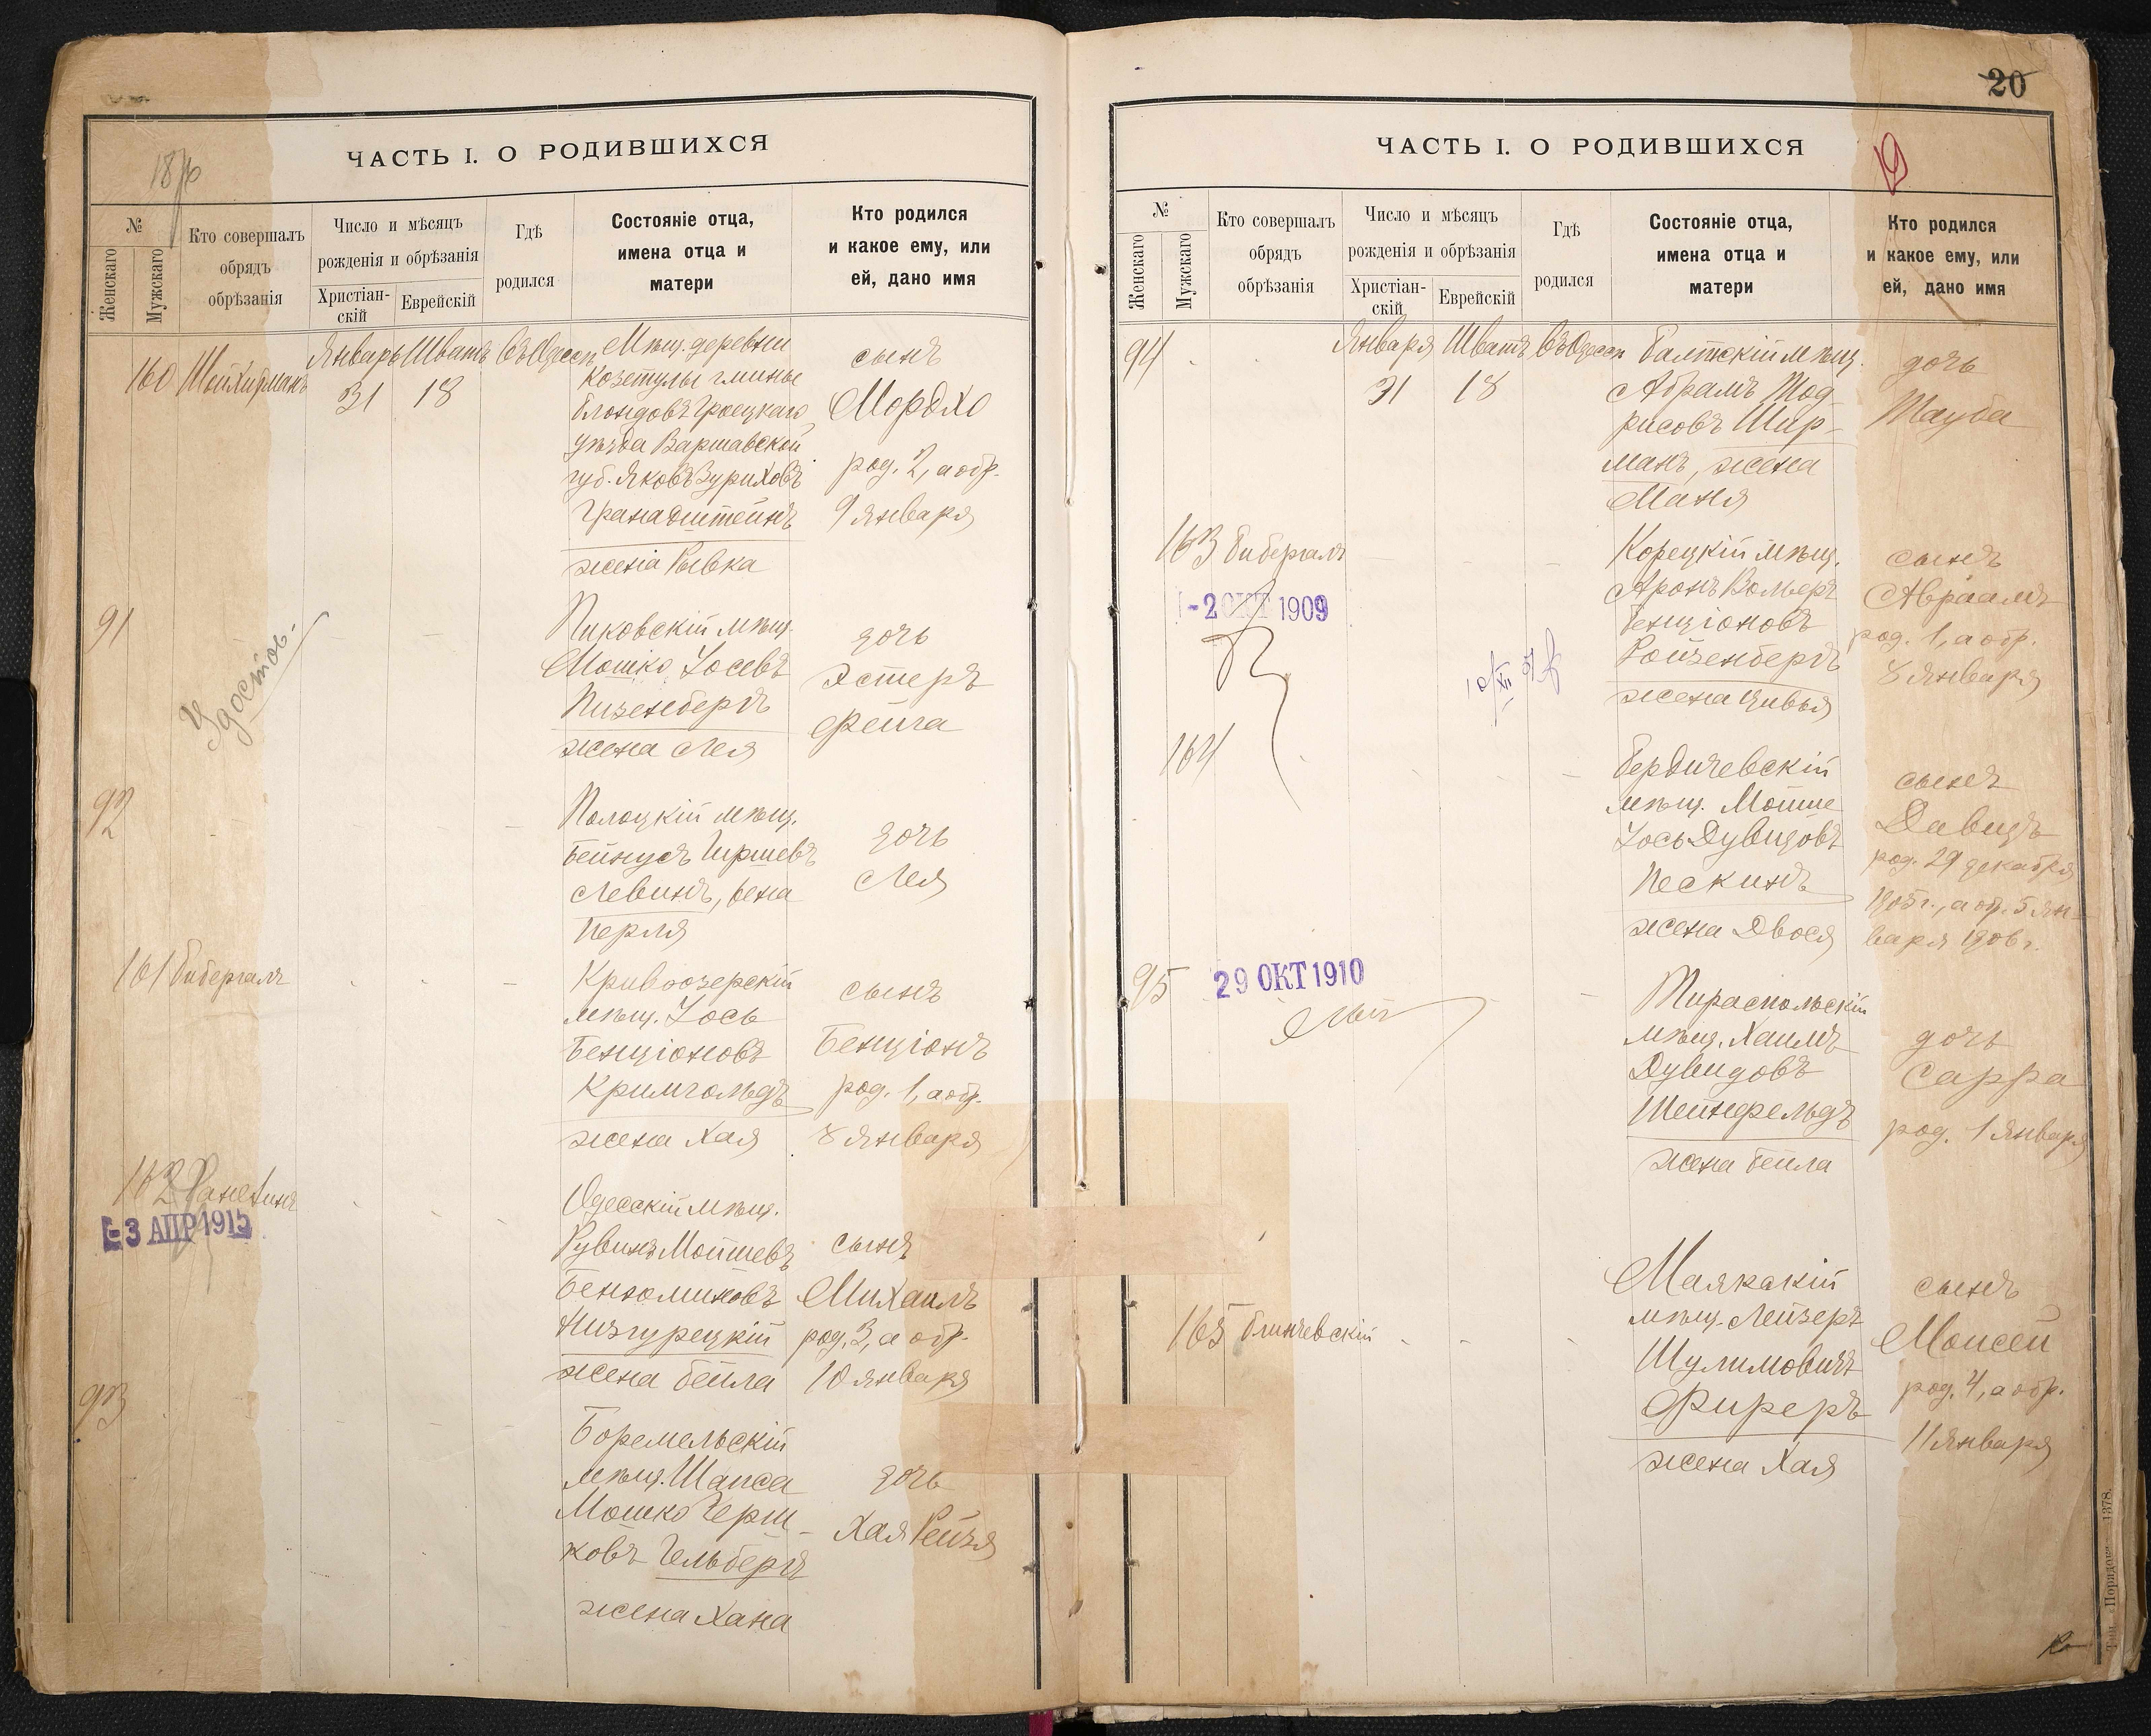 ЧАСТЬ I. О РОДИВШИХСЯ
№
Женскаго
Мужскаго
Кто совершалъ
обрядъ
обрѣзанія
Число и мѣсяцъ
рожденія и обрѣзанія
Христіан-
скій
Еврейскій
Гдѣ
родился
Состояніе отца,
имена отца и
матери
Кто родился
и какое ему, или
ей, дано имя
160
Январь Шватъ
31 18
Мѣщ. деревни
Козетулы гмины
уѣзда Варшавской
губ. Яковъ Зуриховъ
Гранадштейнъ
жена Рывка
сынъ
Мордхо
род. 2, а обр.
9 января
91
Удостов.
Пиковскій мѣщ.
Мошко Іосевъ
Пизенбергъ
жена Лея
дочь
Эстеръ
Фейга
92
Полоцкій мѣщ.
Бейнусъ Гиршевъ
Левинъ, жена
Перля
дочь
Лея
161 Бибергалъ
Кривоозерскій
мѣщ. Іось
Бенціоновъ
Кримгольдъ
жена Хая
сынъ
Бенціонъ
род. 1, а обр.
8 января
162
-3 АПР 1915
Одесскій мѣщ.
Рувинъ Мойшевъ
Бенюминовъ
Низгурецкій
жена Бейла
сынъ
Михаилъ
род. 3, а обр.
10 января
93
Боремельскій
мѣщ. Шапса
Мошко Герш-
ковъ Гельбергъ
жена Хана
дочь
Хая Рейзя
20
19
ЧАСТЬ I. О РОДИВШИХСЯ
№
Женскаго
Мужскаго
Кто совершалъ
обрядъ
обрѣзанія
Число и мѣсяцъ
рожденія и обрѣзанія
Христіан-
скій
Еврейскій
Гдѣ
родился
Состояніе отца,
имена отца и
матери
Кто родился
и какое ему, или
ей, дано имя
94
Января Шватъ
31 18
Балтскій мѣщ.
Абрамъ Тод-
рисовъ Шир-
манъ, жена
Маня
дочь
Тауба
163 Бибергалъ
-2 ОКТ 1909
Корецкій мѣщ.
Аронъ Вольеръ
Бенціоновъ
Ройзенбергъ
жена Цивья
сынъ
Авраамъ
род. 1, а обр.
8 января
164
Бердичевскій
мѣщ. Мойше
Іось Дувидовъ
Пескинъ
жена Двося
сынъ
Давидъ
род. 29 декабря
1905 г., а обр. 5 ян-
варя 1906 г.
95
29 ОКТ 1910
Тираспольскій
мѣщ. Хаимъ
Дувидовъ
Шейнфельдъ
жена Бейла
дочь
Сарра
род. 1 января
165 Блинчевскій
Маякскій
мѣщ. Лейзеръ
Шулимовичъ
Фиреръ
жена Хая
сынъ
Моисей
род. 4, а обр.
11 января
Тип. „Порядокъ" 1378.